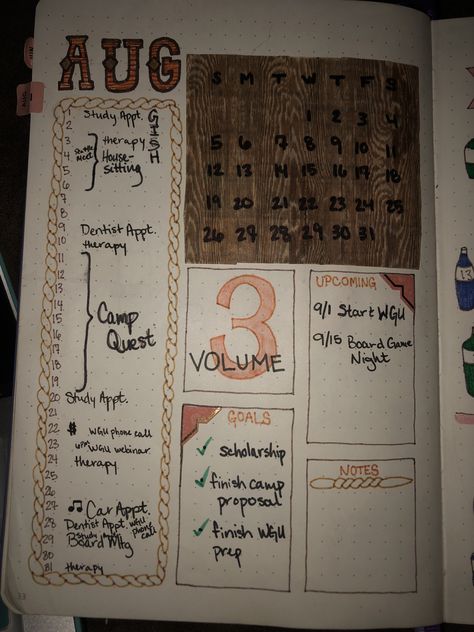 AUG
1
2 Study Appt.
3
4 therapy
5 House-
6 sitting
GISH
7
8
9 Dentist Appt.
10 therapy
11
12
13
14
15 Camp
16 Quest
17
18
19
20 Study Appt.
21
22 WGU phone call
23 6pm WGU webinar
24 therapy
25
26
27 Car Appt.
28 Dentist Appt. WGU phone call
study
29 Board Mtg
30
31 therapy
S M T W T F S
1 2 3 4
5 6 7 8 9 10 11
12 13 14 15 16 17 18
19 20 21 22 23 24 25
26 27 28 29 30 31
3
VOLUME
UPCOMING
9/1 Start WGU
9/15 Board Game
Night
GOALS
✓ scholarship
✓ finish camp
proposal
✓ finish WGU
prep
NOTES
33
13